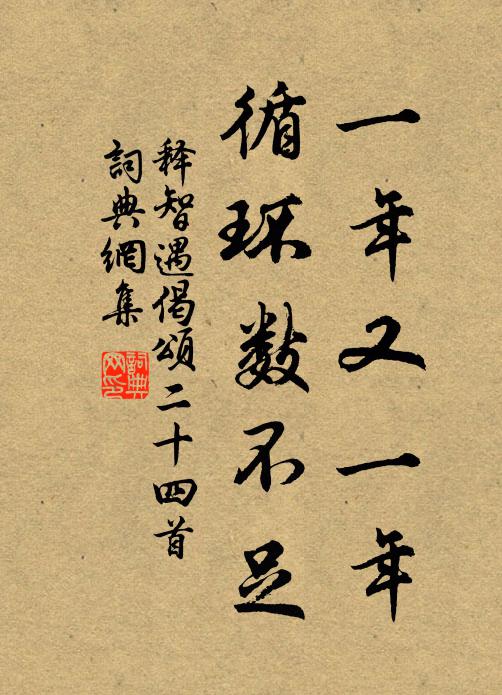 一年又一年
循环数不足
释智遇偈頌二十四首
詞典網集
詞典网印